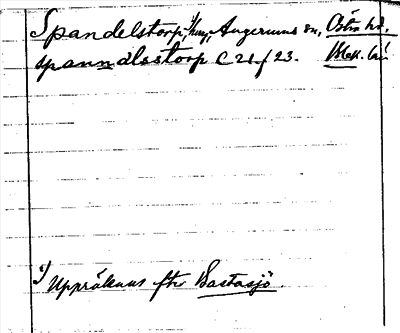 Spandelstorp,¹⁾ hmn, Augerums sn, Östra hd.
spannalsstorp C 21/23. Blek. län
¹⁾ Uppräknas eftr Bastasjö.